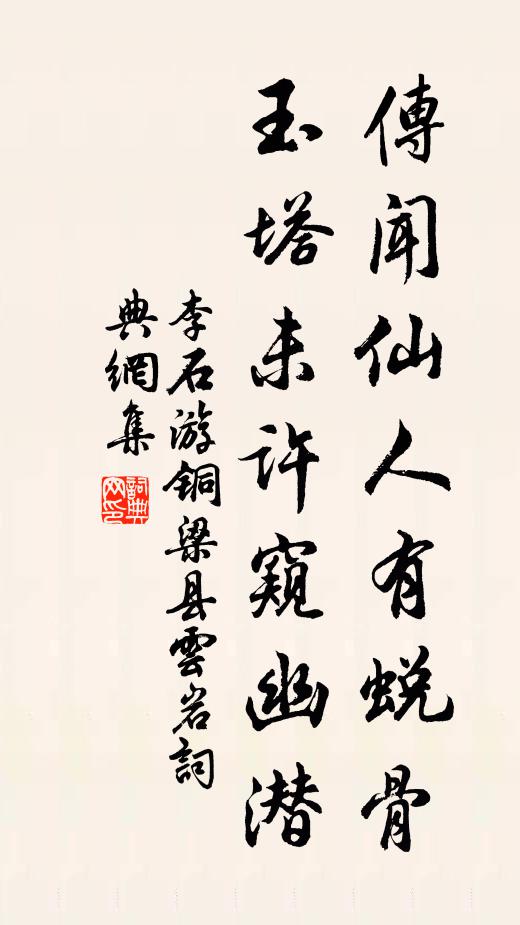 傳聞仙人有蜕骨
玉塔未許窺幽潜
李石游铜梁县雲岩詞
典網集
詞典
网印